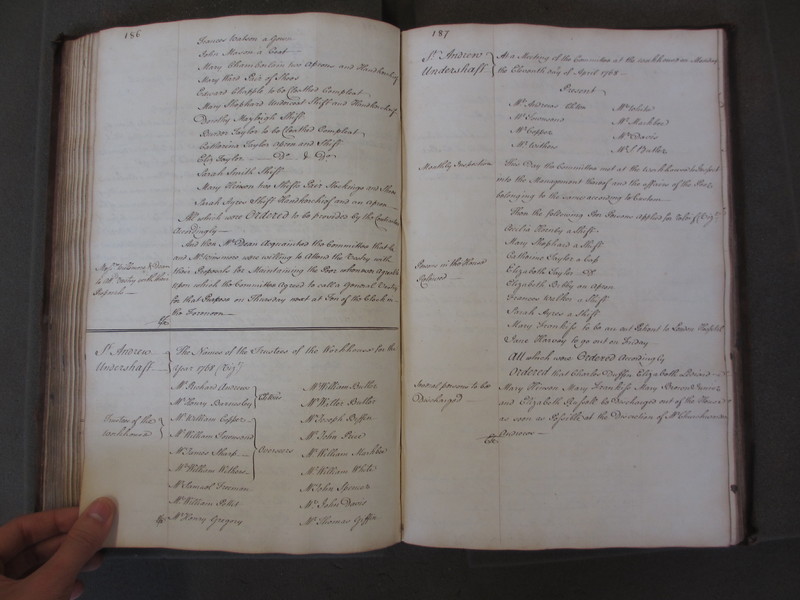 186
Frances Watson a Gown
John Mason a Coat
Mary Chamberlain two Aprons and Handkerchief
Mary Ward Pair of Shoes
Edward Chapple to be Cloathed Compleat
Mary Shephard Shift and Handkerchief
Dorothy Mayleigh Shift
Taylor to be Cloathed Compleat
Catharine Taylor Apron and Shift
Eliz Taylor Do & Do
Sarah Smith Shift
Mary Hinson two Shifts Pair Stockings and Shoes
Sarah Ayres Shift Handkerchief and an apron
All which were Ordered to be provided by the
Accordingly
And then Mr. Dean Acquainted the Committee that he
and Mr. were willing to Attend the Vestry with
their Proposals for Maintaining the Poor whenever Agreeable
upon which the Committee Agreed to call a General Vestry
for that Purpose on Thursday next at Ten of the Clock in
the Forenoon
Mess. & Dean
to att Vestry with their
Proposals
St. Andrew
Undershaft
The Names of the Trustees of the Workhouse for the
Year 1768 (Viz)
Trustees of the
Workhouse
Mr. Richard Andrew
Mr. Henry
Mr. William Copper
Mr. William Townsend
Mr. James Sharp
Mr. William Withers
Mr. Samuel Freeman
Mr. William
Mr. Henry Gregory
Overseers
Mr. William Butler
Mr. Walter Butler
Mr. Joseph
Mr. John Price
Mr. William
Mr. William White
Mr. John Spencer
Mr. John Davis
Mr. Thomas Griffin
187
St. Andrew
Undershaft
At a Meeting of the Committee at the workhouse on Monday
the Eleventh day of April 1768
Present
Mr. Andrew
Mr. Townsend
Mr. Copper
Mr. Withers
Mr. White
Mr.
Mr. Davis
Mr. Butler
Monthly Inspection
This Day the Committee met at the workhouse to Inspect
into the Management thereof and the affairs of the Poor
belonging to the same according to Custom
Then the following Poor Persons applyed for relief (Viz)
Cecilia Hornby a Shift
Mary Shephard a Shift
Catharine Taylor a Cap
Elizabeth Taylor Do
Elizabeth an apron
Frances Walker a Shift
Sarah Ayres a Shift
Mary to be an out Patient to London Hospital
Jane Harvey to go out on Friday
All which were Ordered Accordingly
Persons in the House
Relieved
Ordered that Charles Duffin Elizabeth
Mary Hinson Mary Mary Brown
and Elizabeth Russell be Discharged out of the House
as soon as Possible at the Discretion of Mr. Churchwarden
Andrew
Several persons to be
Discharged